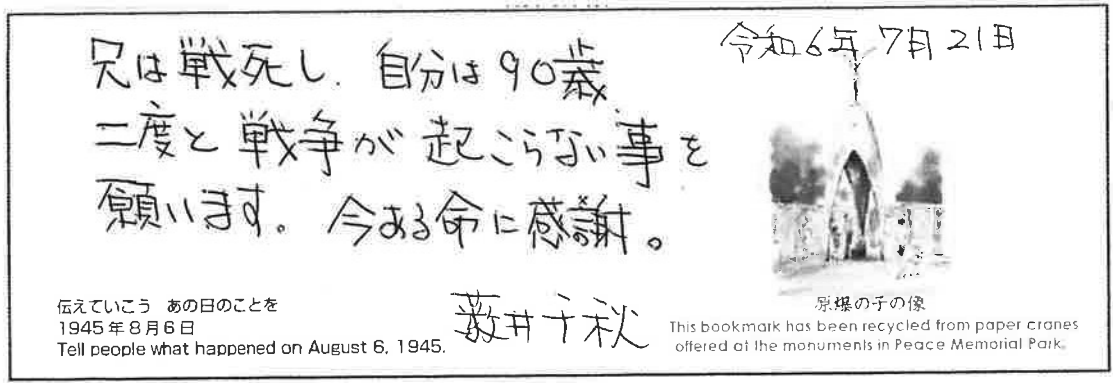 令和6年7月21日
兄は戦死し、自分は90歳
二度と戦争が起こらない事を
願います。今ある命に感謝。
薮井千秋
伝えていこう あの日のことを
1945年8月6日
Tell people what happened on August 6, 1945.
原爆の子の像
This bookmark has been recycled from paper cranes
offered at the monuments in Peace Memorial Park.